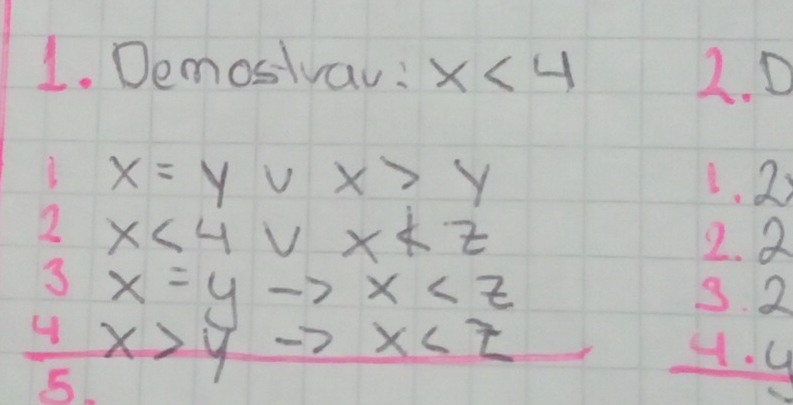 1. Demostrar: x < 4
1 x = y ∨ x > y
2 x < 4 ∨ x ≮ z
3 x = y -> x < z
4 x > y -> x < z
5.
2. D
1. 2x
2. 2
3. 2
4. y